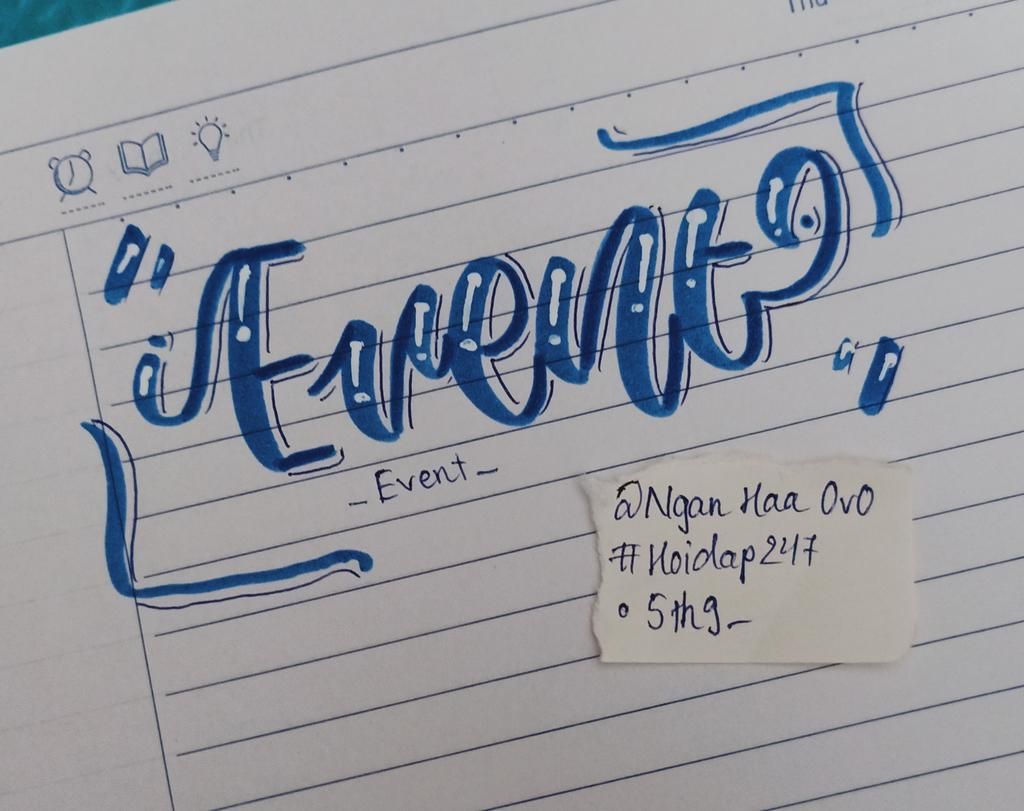 Thu
"Event"
_Event_
@Ngan Haa OvO
#Hoidap247
• 5th9_